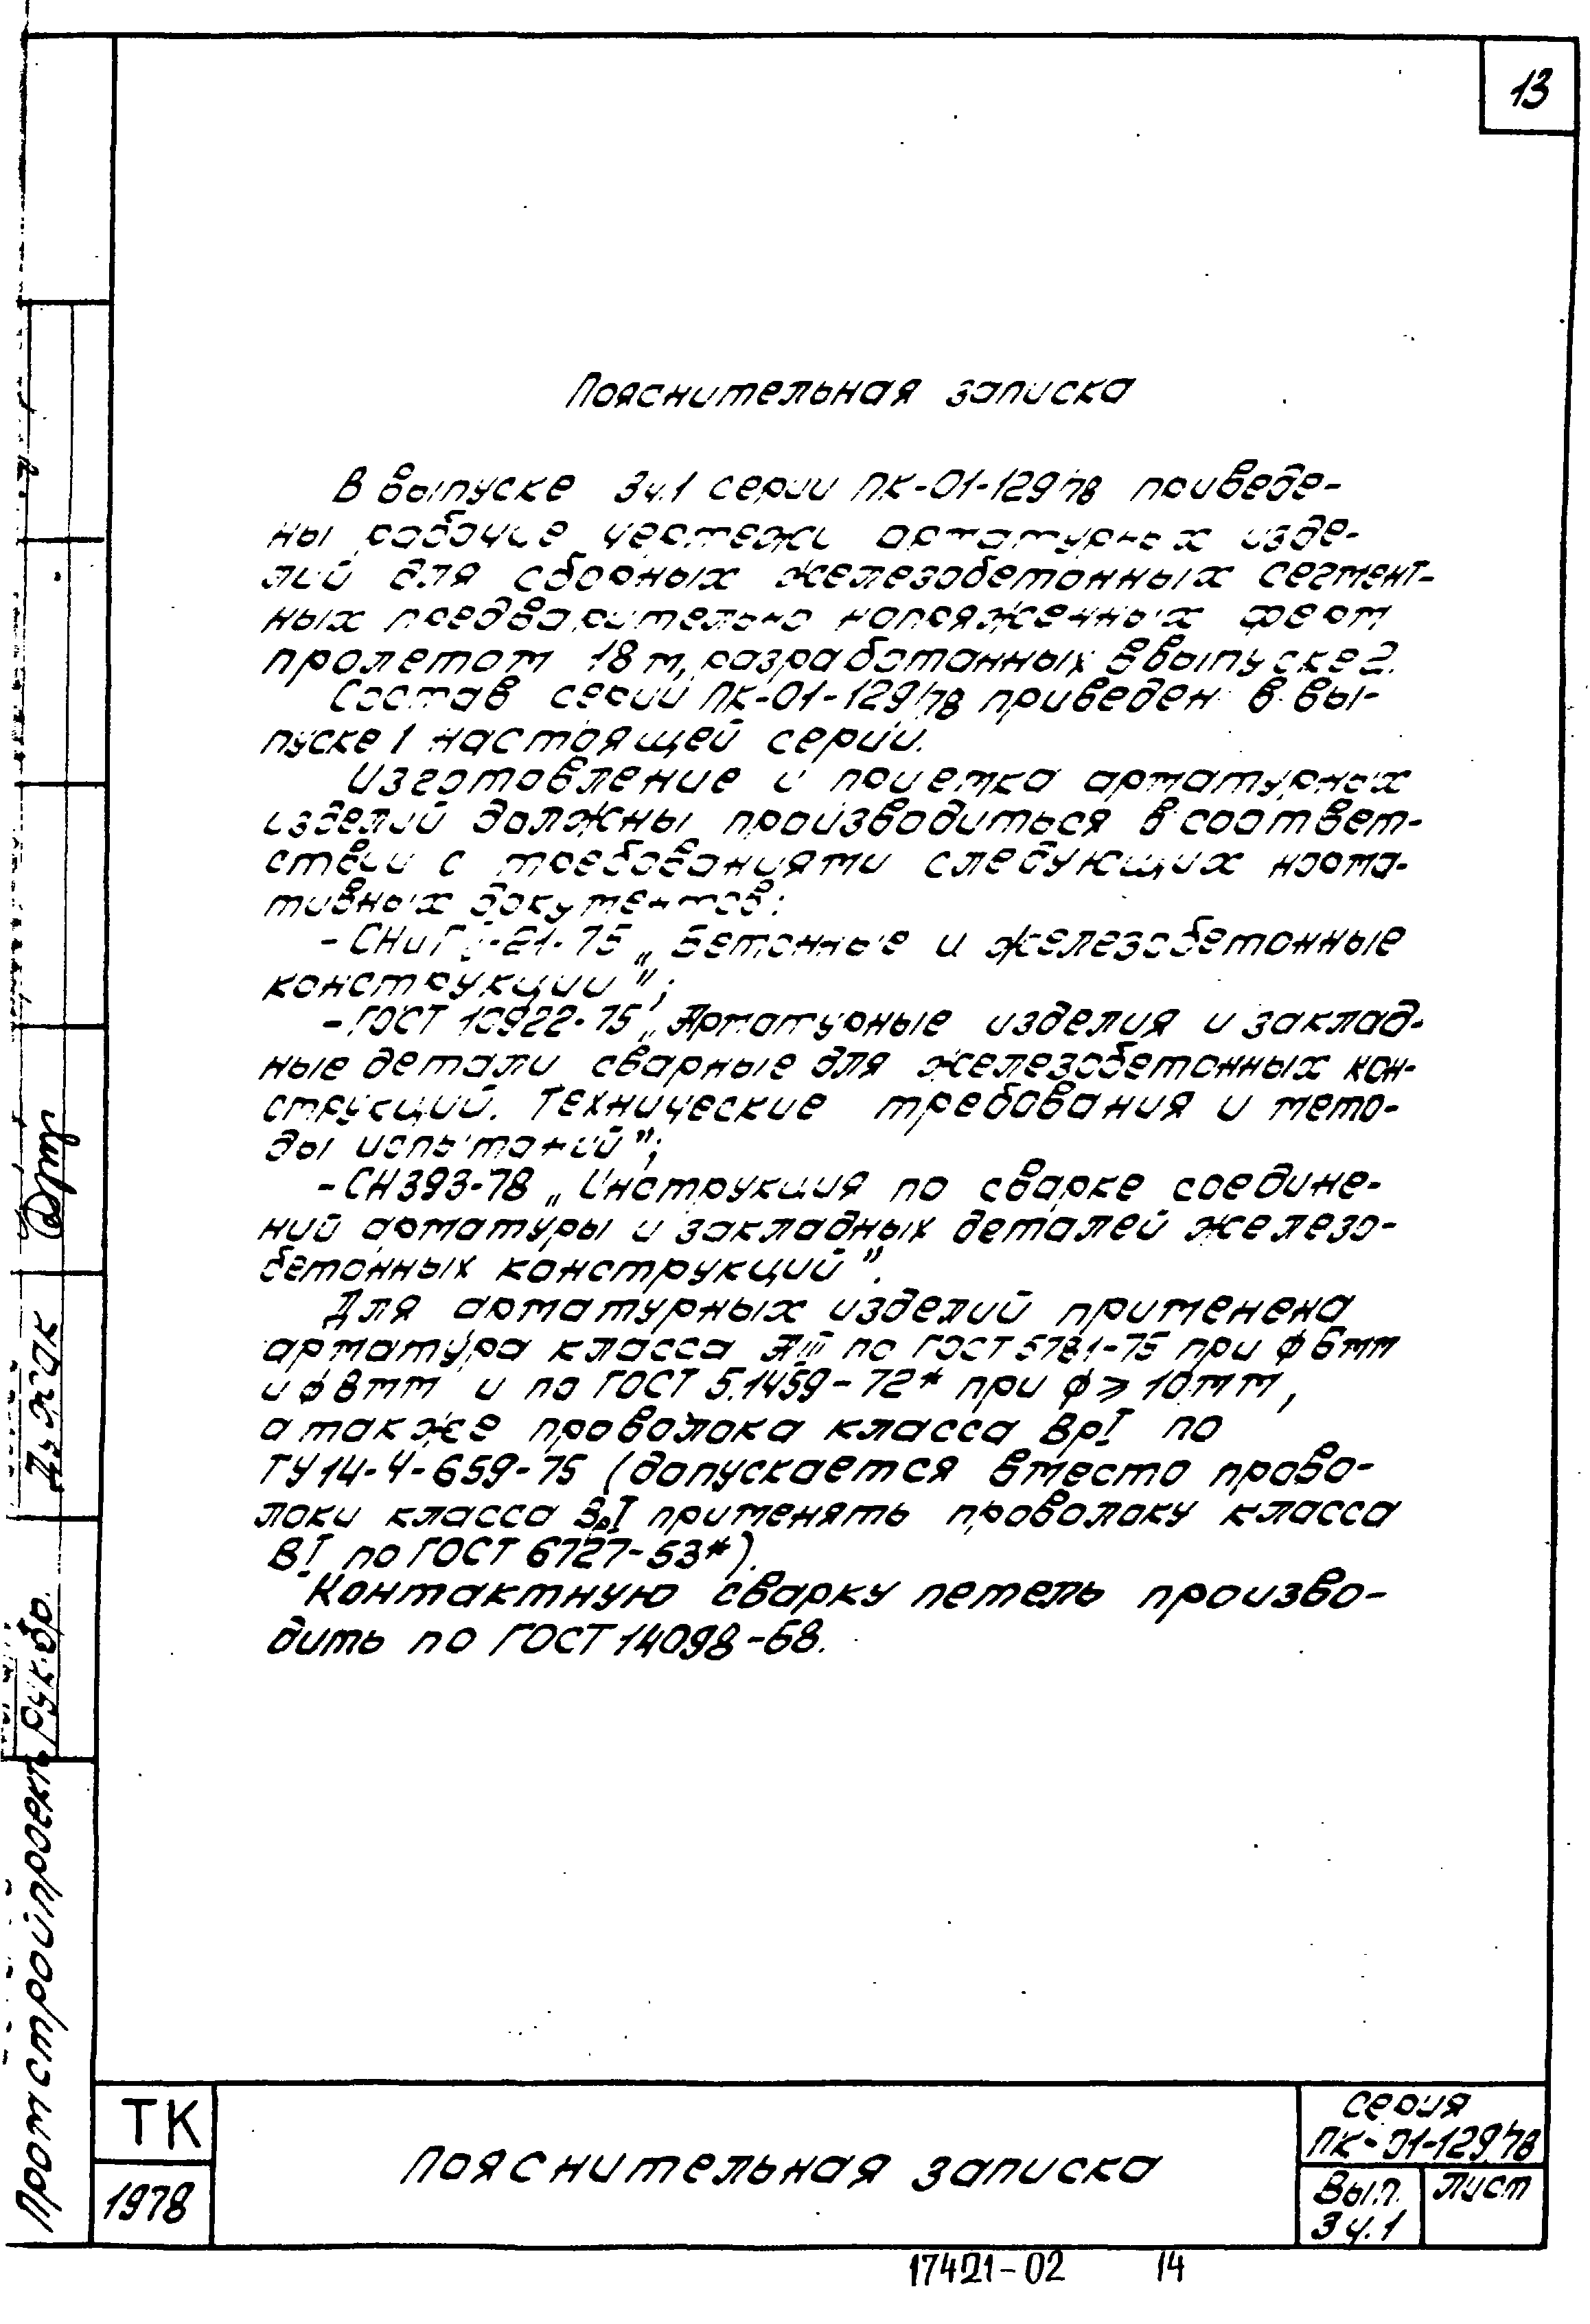 13
Пояснительная записка
В выпуске 3ч.1 серии ПК-01-129/78 приведе-
ны рабочие чертежи арматурных изде-
лий для сборных железобетонных сегмент-
ных предварительно напряженных ферм
пролетом 18м, разработанных в выпуске 2.
Состав серии ПК-01-129/78 приведен в вы-
пуске 1 настоящей серии.
Изготовление и приемка арматурных
изделий должны производиться в соответ-
ствии с требованиями следующих норма-
тивных документов:
- СНиП -21-75 „Бетонные и железобетонные
конструкции";
- ГОСТ 10922-75 „Арматурные изделия и заклад-
ные детали сварные для железобетонных кон-
струкций. Технические требования и мето-
ды испытаний";
- СН 393-78 „Инструкция по сварке соедине-
ний арматуры и закладных деталей железо-
бетонных конструкций".
Для арматурных изделий применена
арматура класса АIII по ГОСТ 5781-75 при ф 6мм
и ф 8мм и по ГОСТ 5.1459-72* при ф ≥ 10мм,
а также проволока класса ВрI по
ТУ 14-4-659-75 (допускается вместо прово-
локи класса ВрI применять проволоку класса
ВI по ГОСТ 6727-53*).
Контактную сварку петель произво-
дить по ГОСТ 14098-68.
Промстройпроект
Рук.бр.
ТК
1978
Пояснительная записка
серия
ПК-01-129/78
Вып.
3 ч.1
Лист
17421-02 14